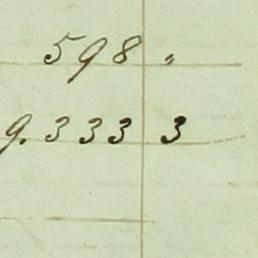 598 "
9.333 3